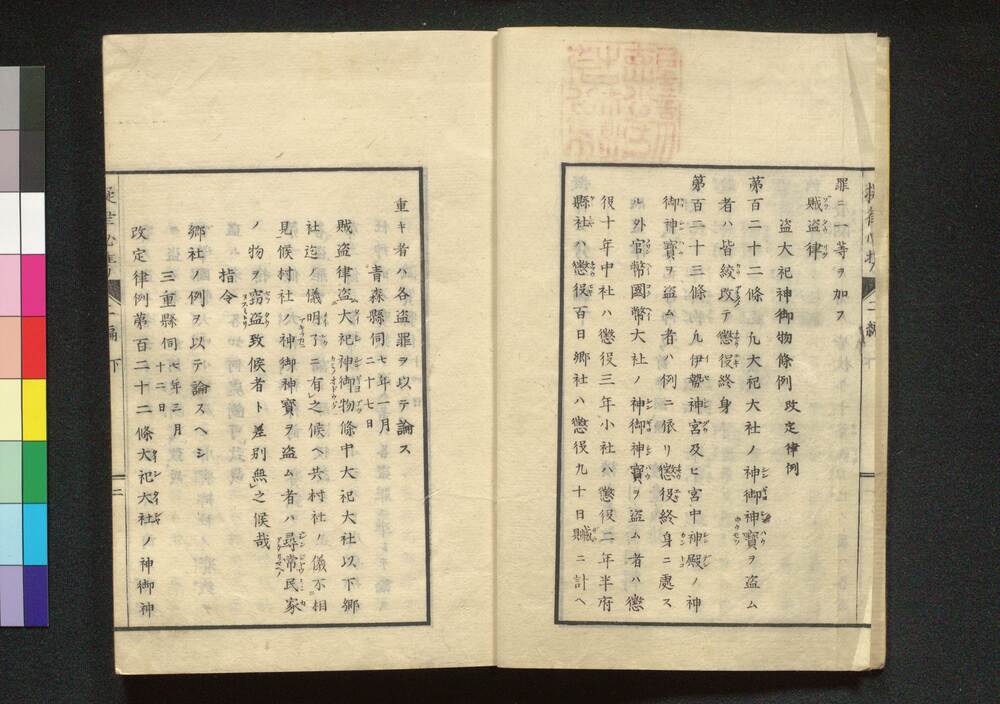 罪ニ一等ヲ加フ
賊盗律
盗大祀神御物條例 改定律例
第百二十二條 凡大祀大社ノ神御神寳ヲ盗ム
者ハ皆絞改テ懲役終身
第百二十三條 凡伊勢神宮及ヒ宮中神殿ノ神
御神寳ヲ盗ム者ハ例ニ依リ懲役終身ニ處ス
此外官幣國幣大社ノ神御神寳ヲ盗ム者ハ懲
役十年中社ハ懲役三年小社ハ懲役二年半府
縣社ハ懲役百日郷社ハ懲役九十日贓ニ計ヘ
二編 下
重キ者ハ各盗罪ヲ以テ論ス
青森縣伺 七年一月二十七日
賊盗律盗大祀神御物條中大祀大社以下郷
社迄ノ儀明了ニ有之候ヘ共村社ノ儀不相
見候村社ノ神御神寳ヲ盗ム者ハ尋常民家
ノ物ヲ窃盗致候者ト差別無之候哉
指令
郷社ノ例ヲ以テ論スヘシ
三重縣伺 七年三月十二日
改定律例第百二十二條大祀大社ノ神御神
編 下 二